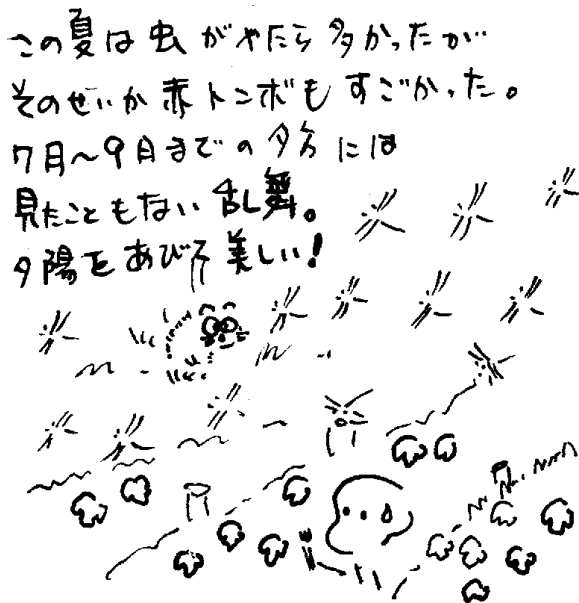 この夏は虫がやたら多かったが
そのせいか赤トンボもすごかった。
7月〜9月までの夕方には
見たこともない乱舞。
夕陽をあびて美しい!